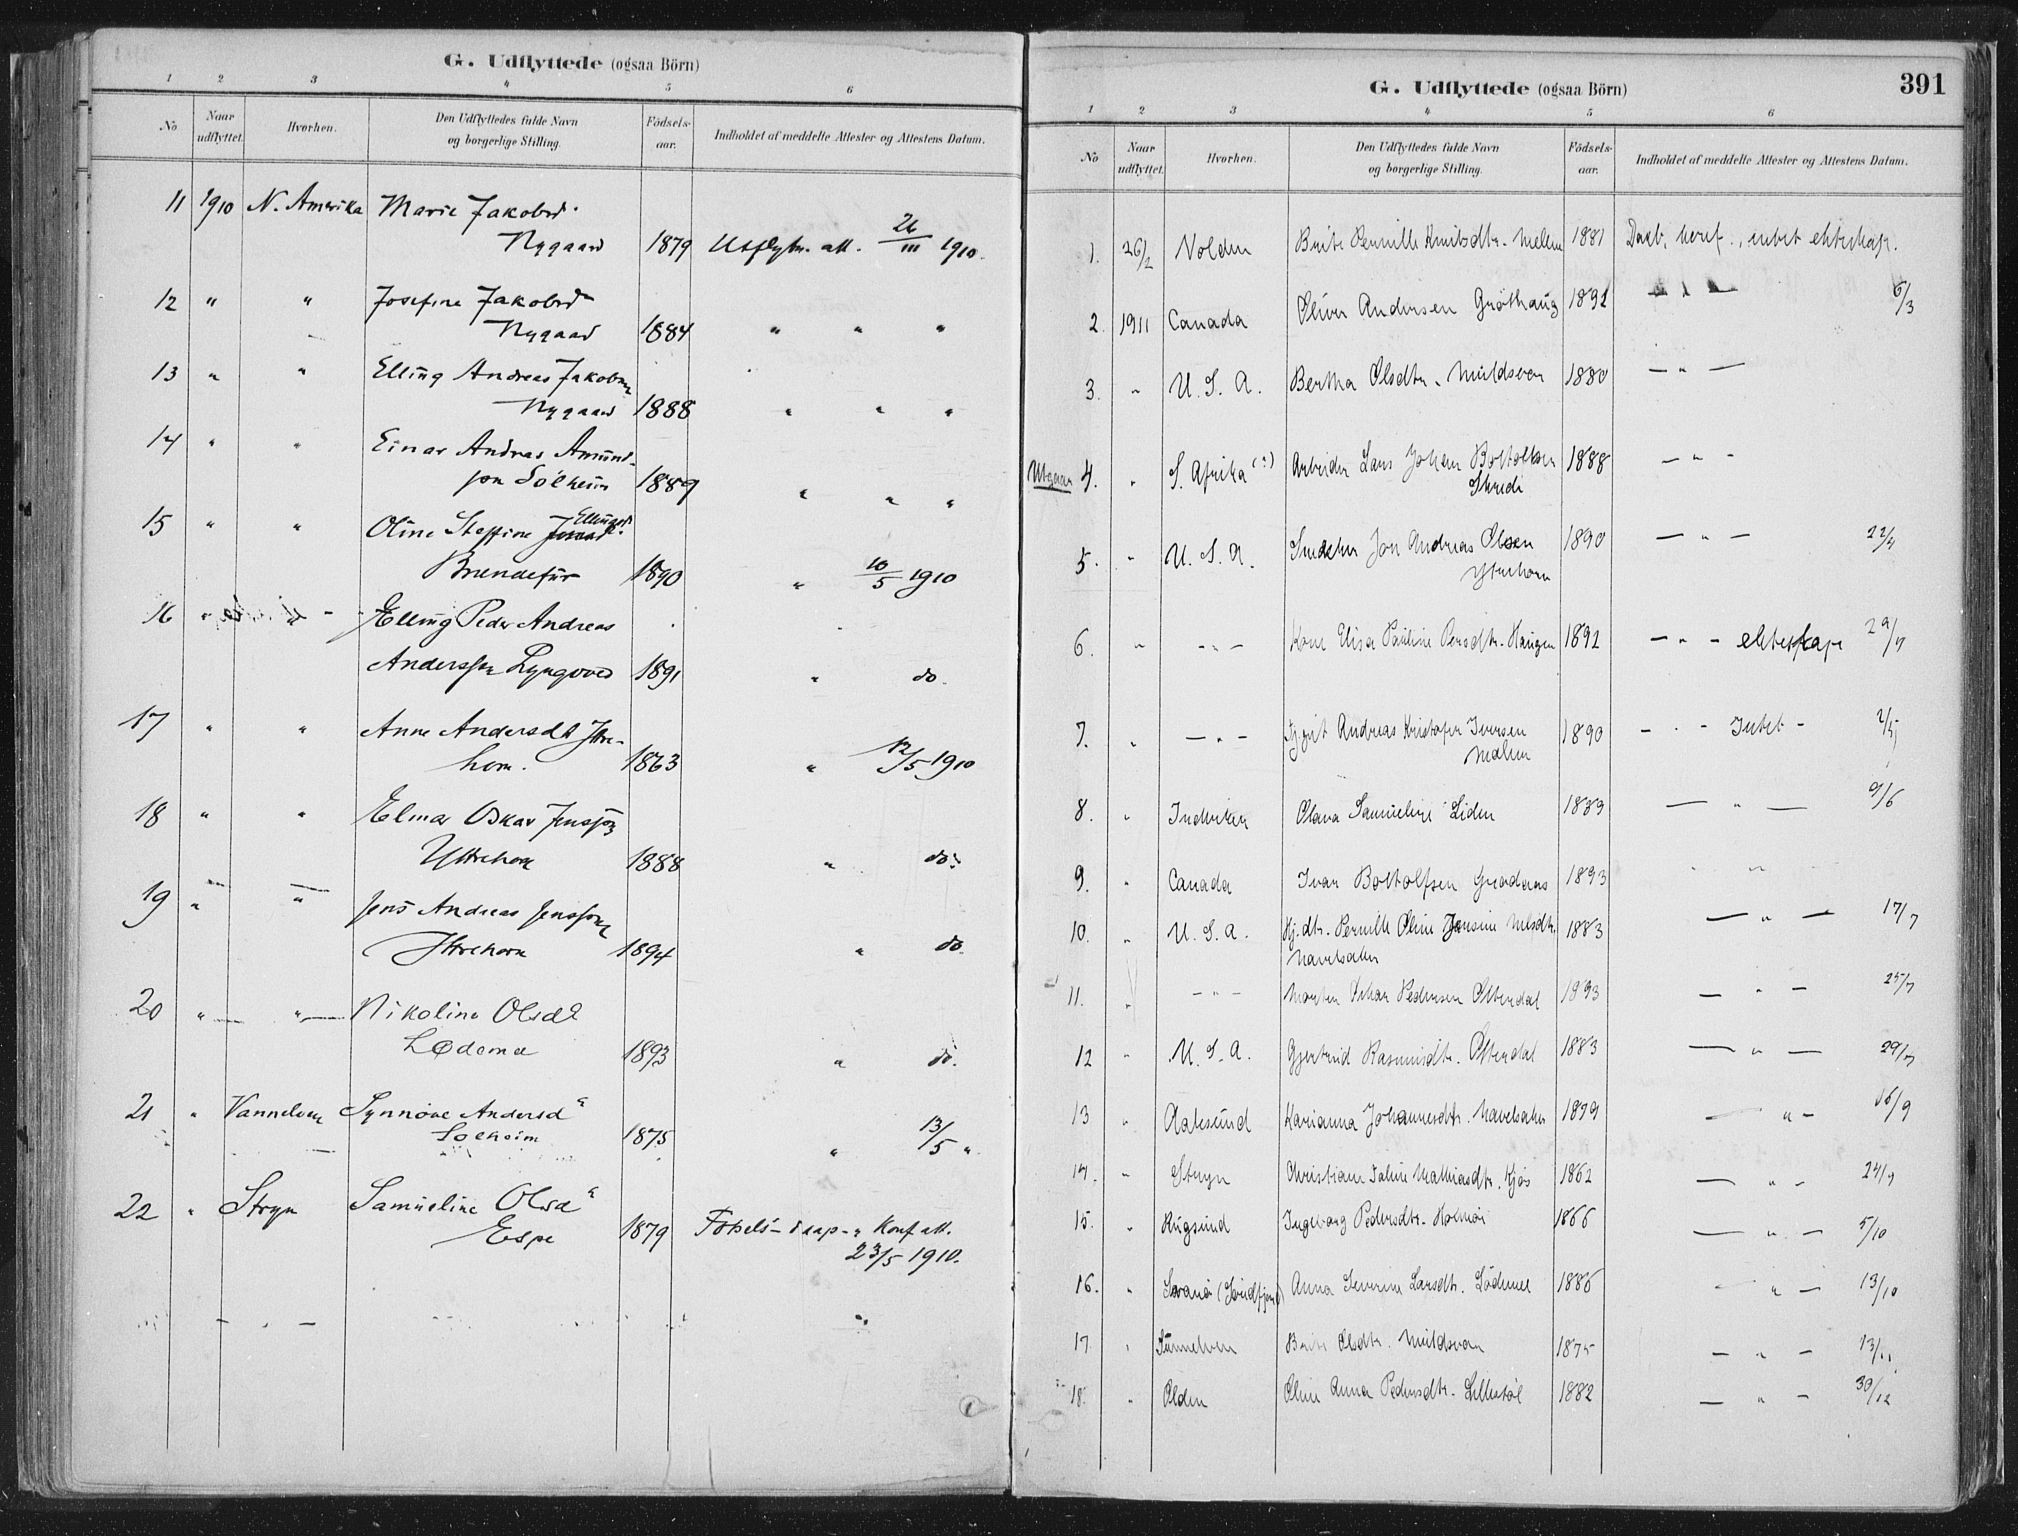 G. Udflyttede (ogsaa Börn)
1 2 3 4 5 6
No Naar udflyttet. Hvorhen. Den Udflyttedes fulde Navn og borgerlige Stilling. Födsels-aar. Indholdet af meddelte Attester og Attestens Datum.
11 1910 N. Amerika Marie Jakobsd.
Nygaard 1879 Utflytn. att. 26/III 1910.
12 " " Josefine Jakobsd
Nygaard 1884 " " "
13 " " Elling Andreas Jakobsen
Nygaard 1888 " " "
14 " " Einar Andreas Amund-
son Solheim 1889 " " "
15 " " Oline Steffine Ellingsd.
1890 " 10/5 1910
16 " " Elling Peder Andreas
Andersson Lyngvoed 1891 " do.
17 " " Anne Andersdt Ytre-
horn. 1863 " 12/5 1910
18 " " Elmar Oskar Jensson
Yttrehorn 1888 " do.
19 " " Jens Andreas Jensson
Yttrehorn 1894 " do.
20 " " Nikoline Olsd
Lødemel 1893 " do.
21 " Synnøve Andersd
Solheim 1875 " 13/5 "
22 " Stryn Samueline Olsd
Espe 1879 Fødsels- daap- " Konf att.
23/5 1910.
391
G. Udflyttede (ogsaa Börn)
1 2 3 4 5 6
No Naar udflyttet. Hvorhen. Den Udflyttedes fulde Navn og borgerlige Stilling. Födsels-aar. Indholdet af meddelte Attester og Attestens Datum.
1. 26/2 Volden Brite Pernille Knutsdtr. Mellem 1881 Daab, konf., intet ekteskap.
2. 1911 Canada Oliver Andersen Grøthaug 1892 — " — 6/3
3. " U. S. A. Bertha Olsdtr. Muldsvor 1880 — " —
Utgaar 4. " S. Afrika (?) Arbeider Lars Johan Bottolfsen 1888 — " —
Skredi
5. " U. S. A. Jon Andreas Olsen 1890 — " — 22/4
Yttrehorn
6. " — " — Elisa Pauline Persdtr. Haugen 1892 — " — ekteskap 29/4
7. " — " — Andreas Kristofer Iversen 1890 — " — Intet — 2/5
Mælen
8. " Indviken Olava Samueline Liden 1889 — " — 9/6
9. " Canada Ivar Bottolfsen 1893 " "
10. " U. S. A. Pernille Oline Jensine Nilsdtr. 1883 — " — 17/7
Navelsaker
11. " — " — Morten Johan Pedersen Otterdal 1893 — " — 25/7
12 " U. S. A. Gjertrud Rasmusdtr. Otterdal 1883 — " — 29/7
13 " Aalesund Karianna Johannesdtr. Navelsaker 1879 — " — 16/9
14. " Stryn Christiane Mathiasdtr. Kjøs 1862 — " — 24/9
15. " Haugsund Ingeborg Pedersdtr. Holmøi 1866 — " — 5/10
16. " Svanøi (Søndfjord) Anna Severine Larsdtr. Lødemel 1886 — " — 13/10
17. " Sunnelven Brite Olsdtr. Muldsvor 1875 — " — 13/11
18. " Olden Oline Anna Pedersdtr. Lillestøl 1882 — " — 30/12